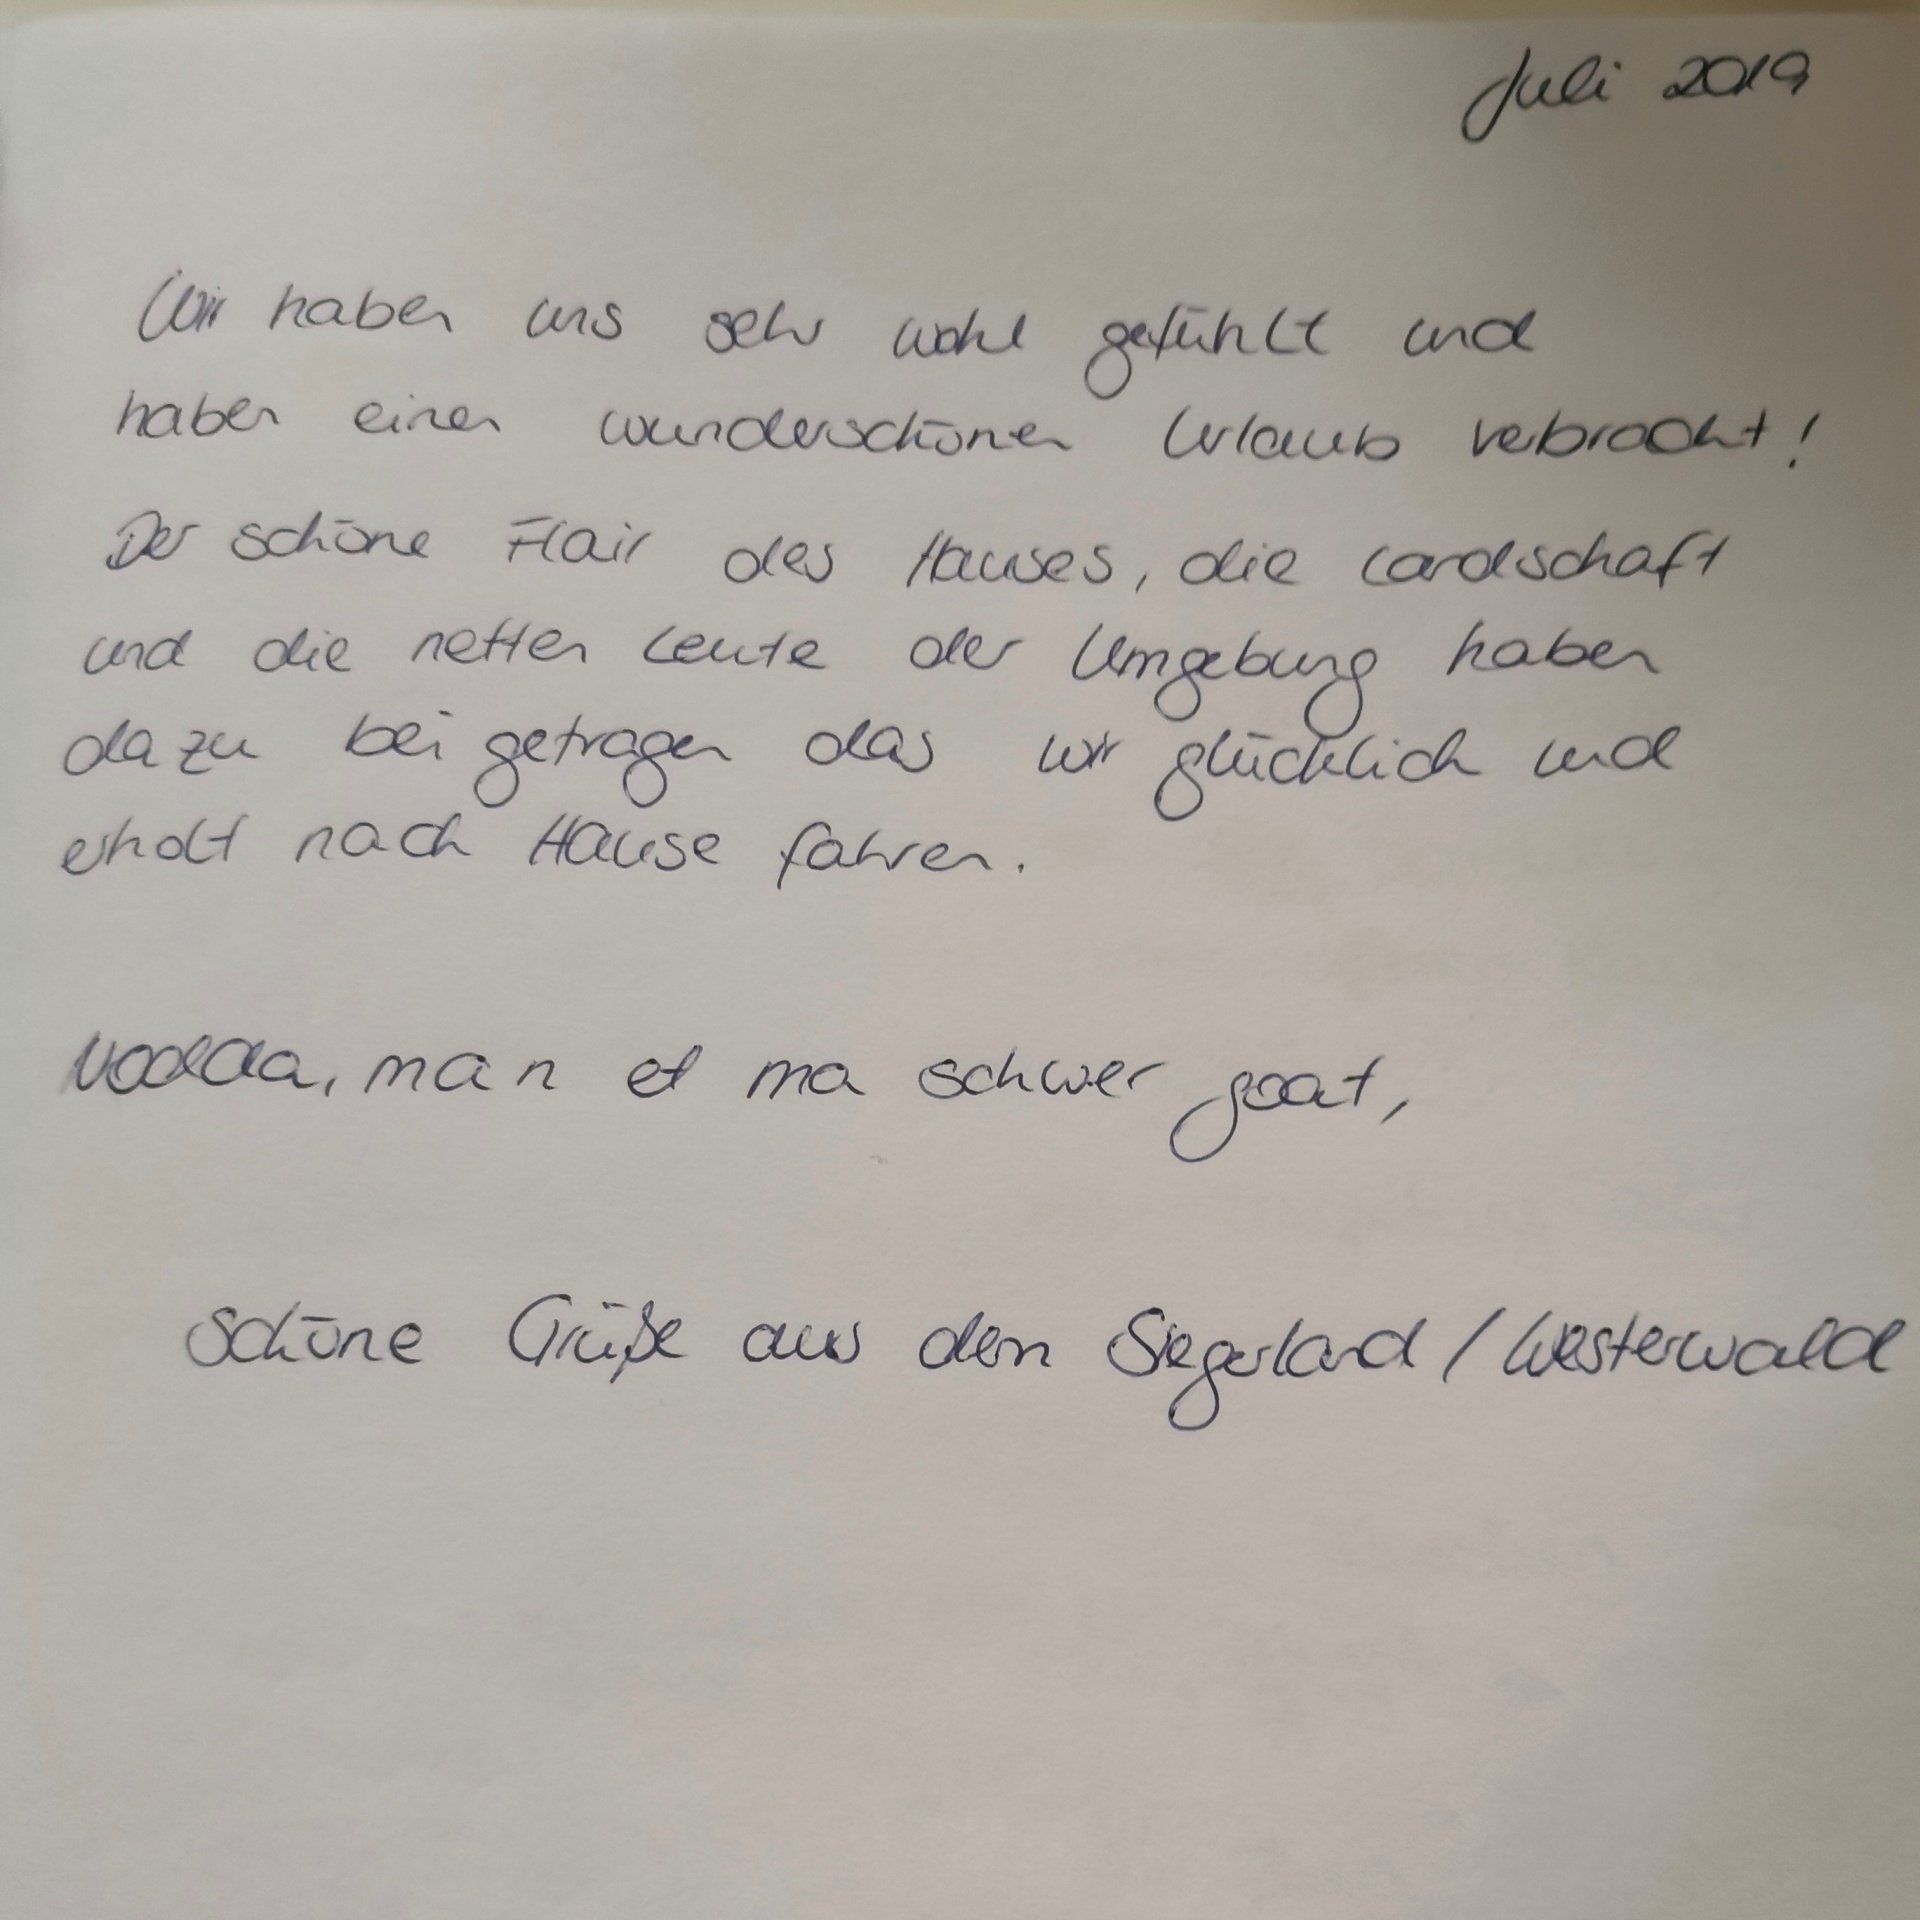 Juli 2019
Wir haben uns sehr wohl gefühlt und
haben einen wunderschönen Urlaub verbracht!
Der schöne Flair des Hauses, die Landschaft
und die netten Leute der Umgebung haben
dazu bei getragen das wir glücklich und
erholt nach Hause fahren.
man et ma schwer goat,
Schöne Grüße aus dem Siegerland / Westerwald